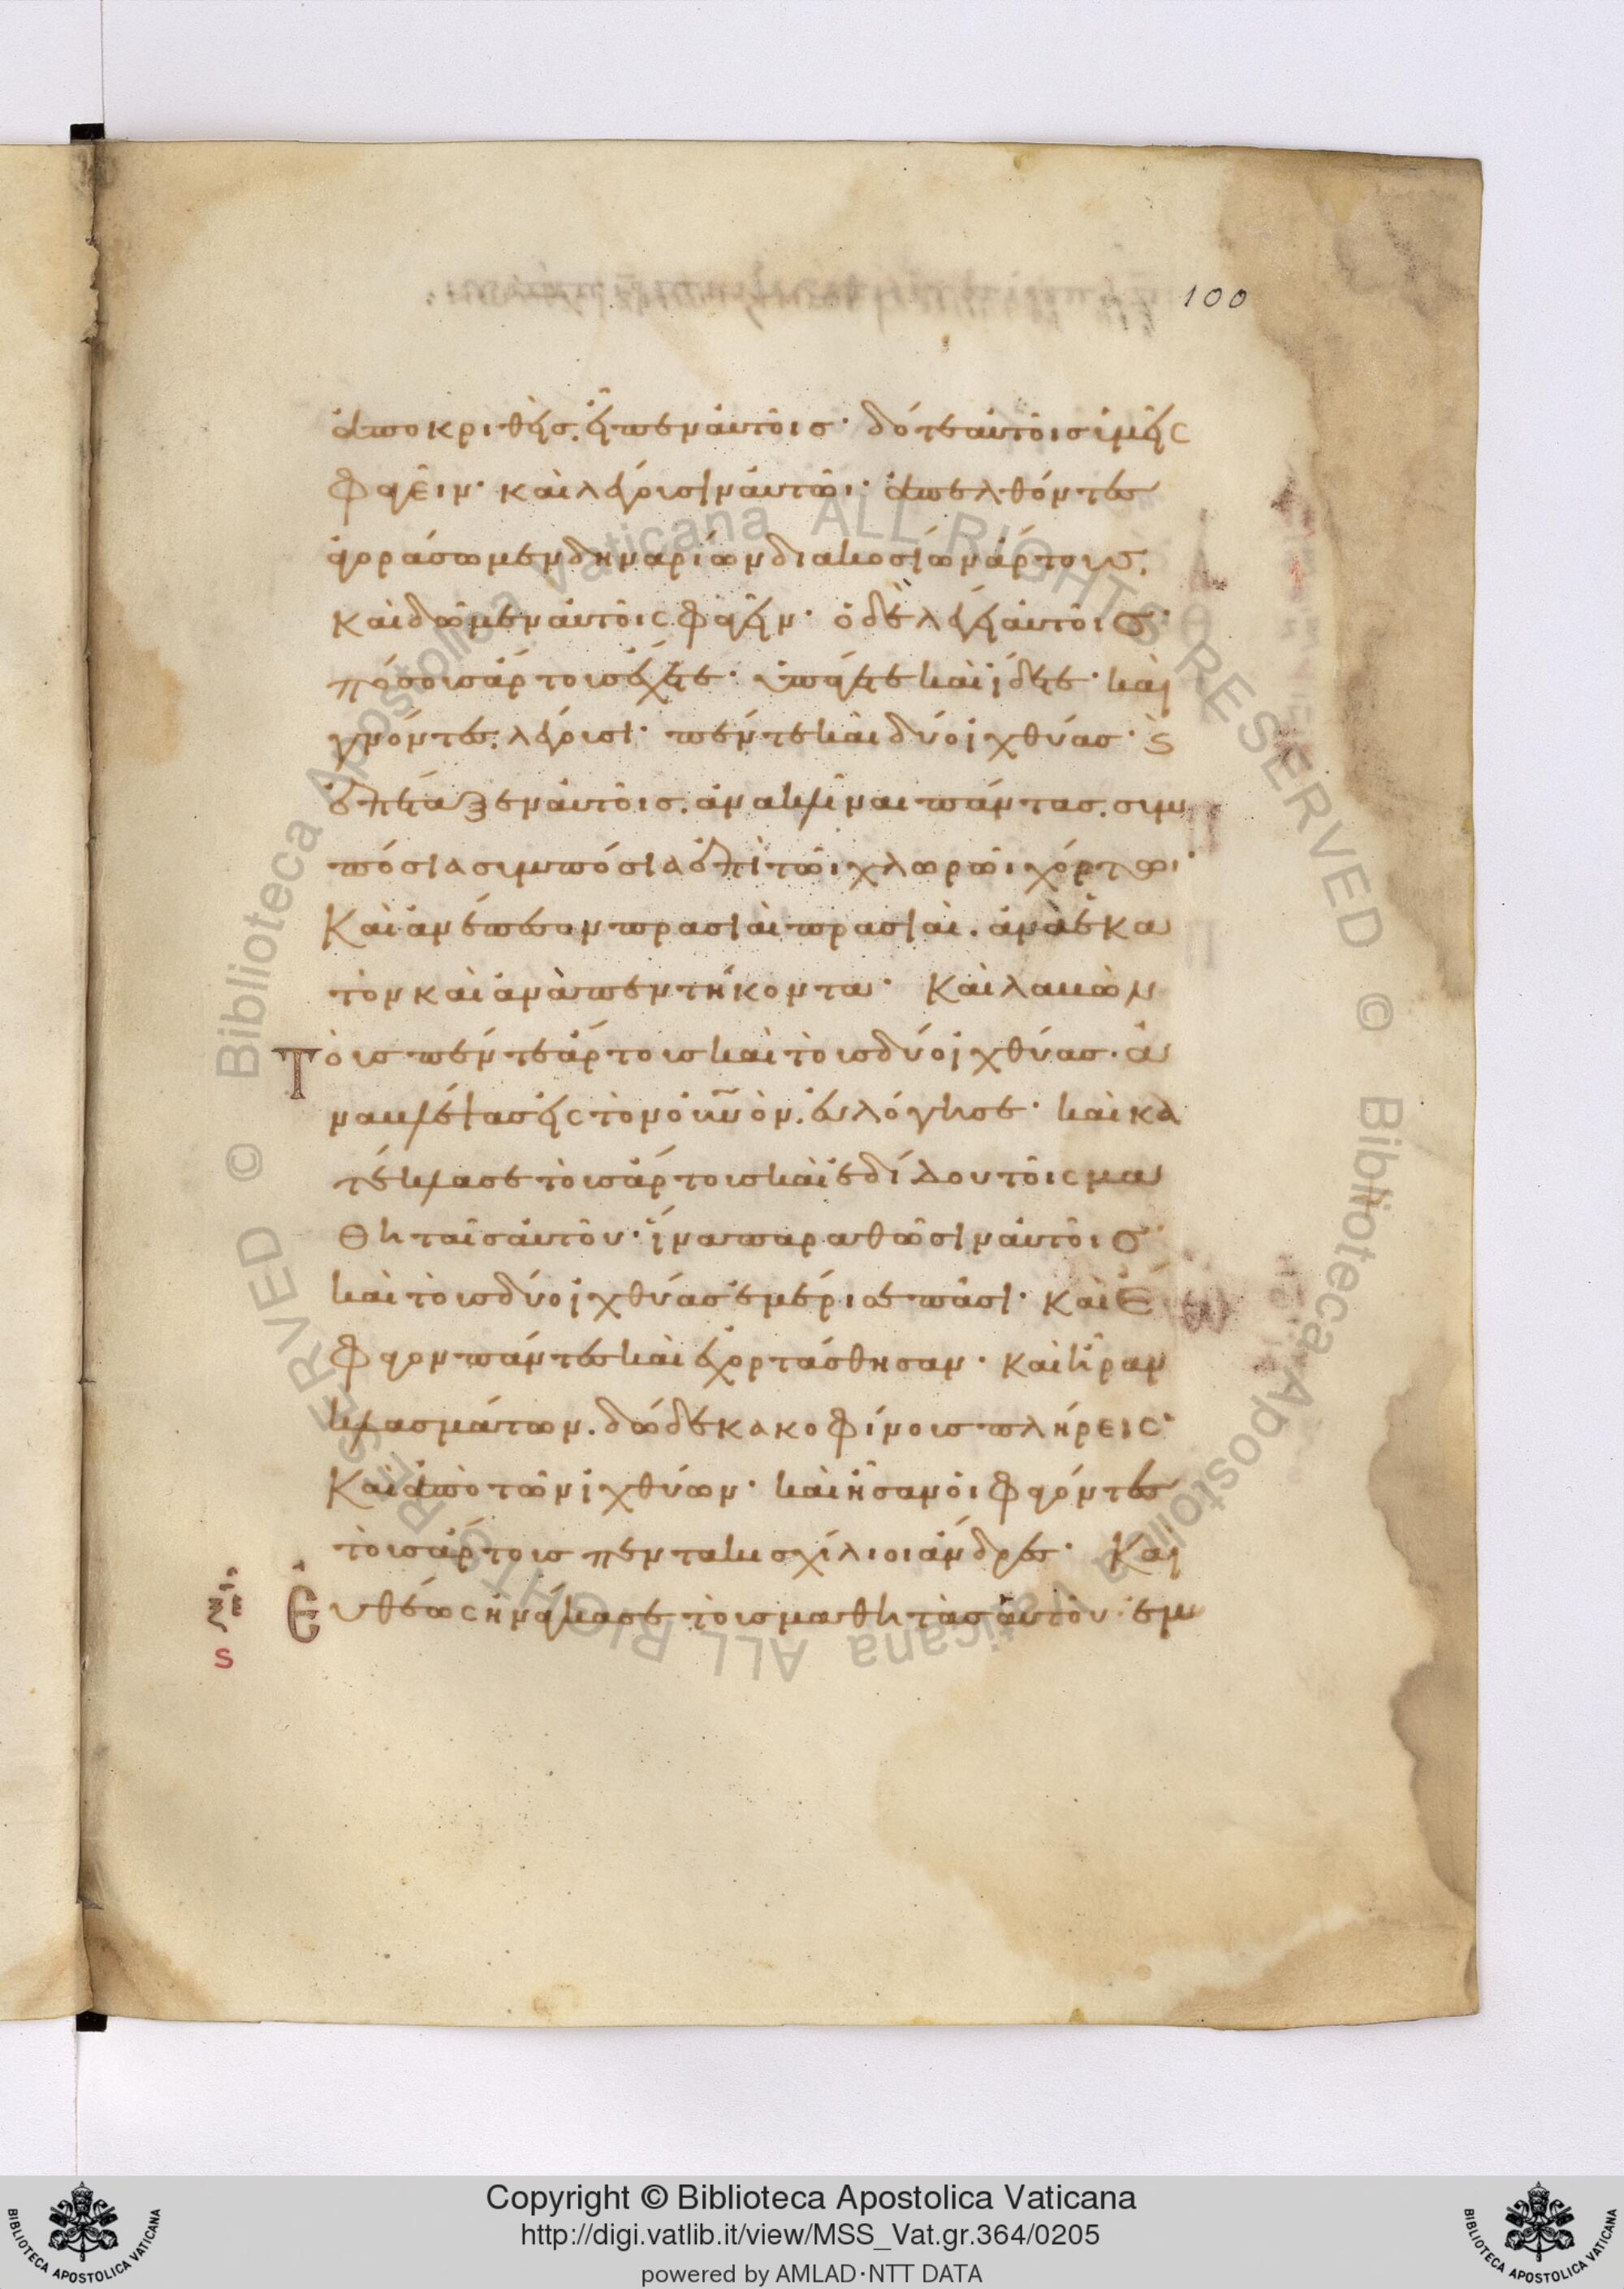 100
ἀποκριθεὶς. εἶπεν αὐτοῖς· δότε αὐτοῖς ὑμεῖς
φαγεῖν· καὶ λέγουσιν αὐτῶι· ἀπελθόντες
ἀγοράσωμεν δηναρίων διακοσίων ἄρτους.
καὶ δῶμεν αὐτοῖς φαγεῖν· ὁ δὲ λέγει αὐτοῖς·
πόσους ἄρτους ἔχετε· ὑπάγετε καὶ ἴδετε· καὶ
γνόντες. λέγουσι· πέντε καὶ δύο ἰχθύας· ϛ
ἐπέταξεν αὐτοῖς. ἀνακλῖναι πάντας. συμ
πόσια συμπόσια ἐπὶ τῶι χλωρῶι χόρτωι·
Καὶ ἀνέπεσαν πρασιαὶ πρασιαὶ. ἀνὰ ἑκα
τὸν καὶ ἀνὰ πεντήκοντα· Καὶ λαβὼν
Τοὺς πέντε ἄρτους καὶ τοὺς δύο ἰχθύας. ἀ
ναβλέψας εἰς τὸν οὐνὸν. εὐλόγησε· καὶ κα
τέκλασε τοὺς ἄρτους καὶ ἐδίδου τοῖς μα
θηταῖς αὐτοῦ· ἵνα παραθῶσιν αὐτοῖς·
καὶ τοὺς δύο ἰχθύας ἐμέρισε πᾶσι· Καὶ ἔ
φαγον πάντες καὶ ἐχορτάσθησαν· Καὶ ἦραν
κλασμάτων. δώδεκα κοφίνους πλήρεις·
Καὶ ἀπὸ τῶν ἰχθύων· καὶ ἦσαν οἱ φαγόντες
τοὺς ἄρτους πεντακισχίλιοι ἄνδρες· Καὶ
Εὐθέως ἠνάγκασε τοὺς μαθητὰς αὐτοῦ· ἐμ
Copyright © Biblioteca Apostolica Vaticana
http://digi.vatlib.it/view/MSS_Vat.gr.364/0205
powered by AMLAD·NTT DATA